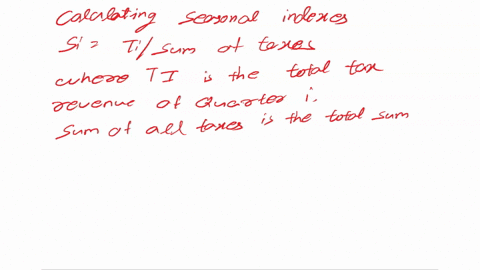 Calculating seasonal indexes
Si = Ti/sum of taxes
where TI is the total tax
revenue of Quarter i.
Sum of all taxes is the total sum